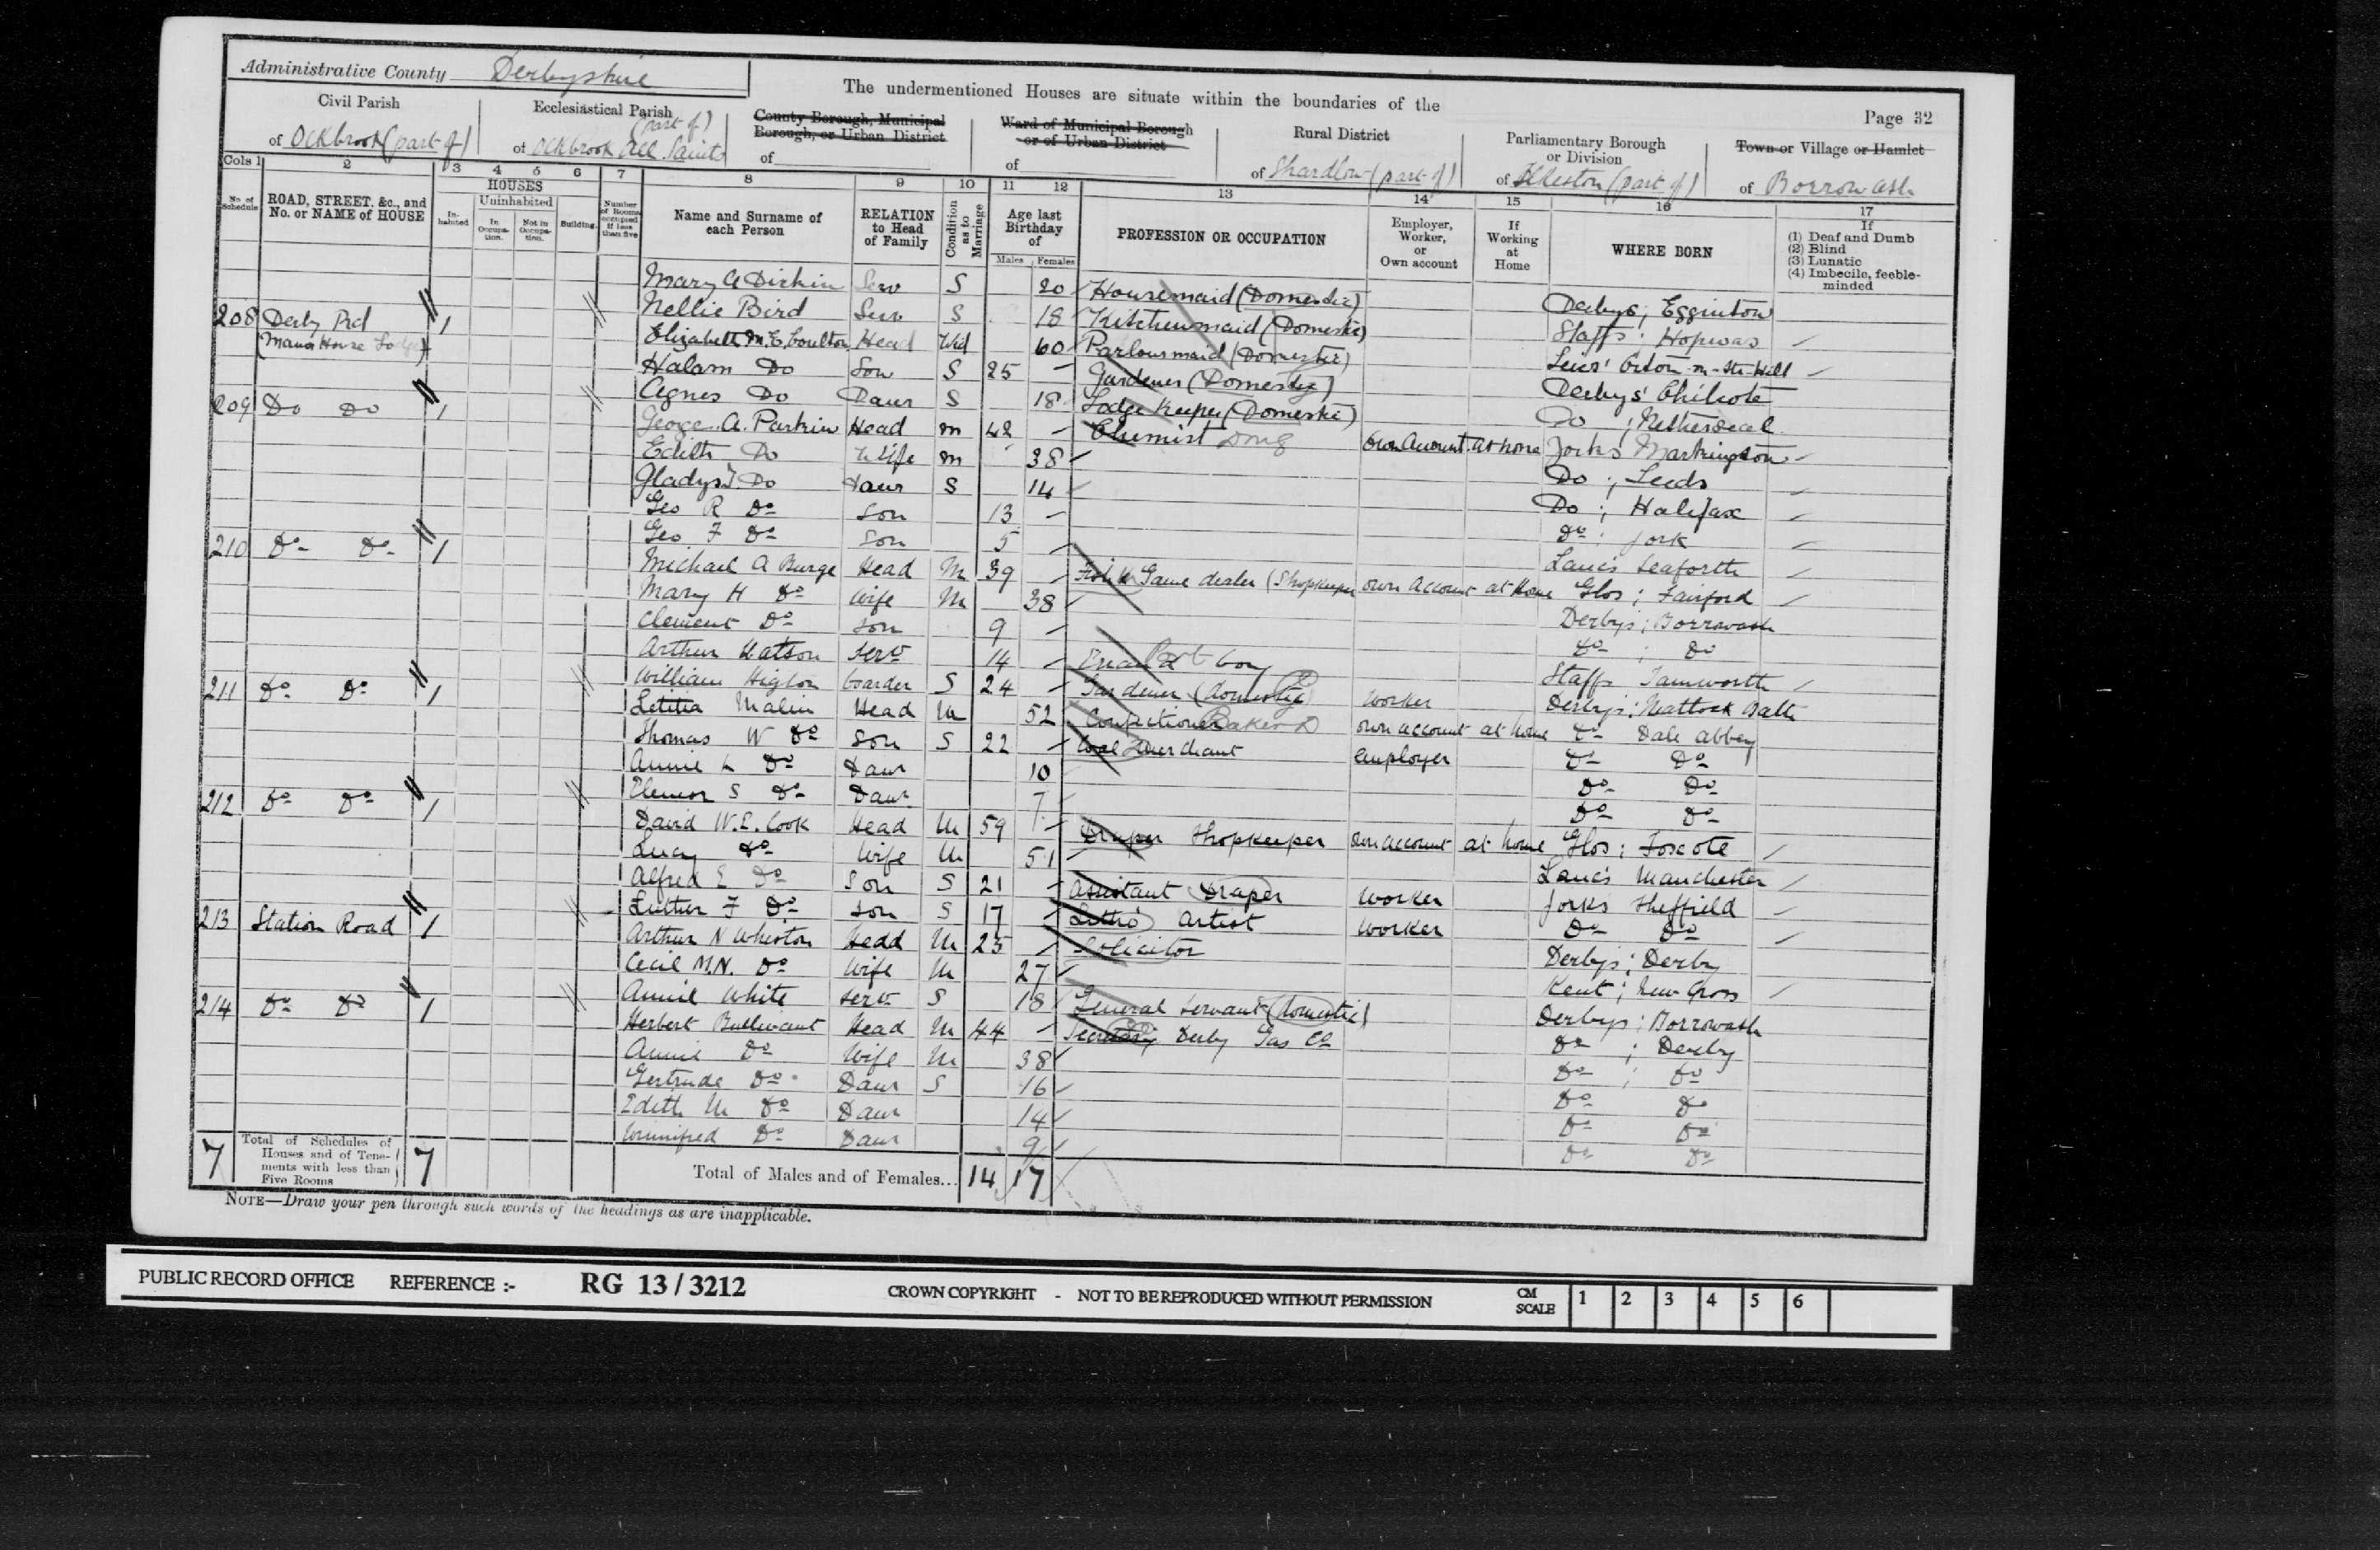 Administrative County Derbyshire
The undermentioned Houses are situate within the boundaries of the
Page 32
Civil Parish
of Ockbrook (part of)
Ecclesiastical Parish
(part of)
of Ockbrook All Saints
County Borough, Municipal
Borough, or Urban District
of
Ward of Municipal Borough
or of Urban District
of
Rural District
of Shardlow (part of)
Parliamentary Borough
or Division
of Ilkeston (part of)
Town or Village or Hamlet
of Borrowash
Cols 1 2 3 4 5 6 7 8 9 10 11 12 13 14 15 16 17
No. of Schedule
ROAD, STREET, &c., and No. or NAME of HOUSE
HOUSES
Inhabited
Uninhabited
In Occupation.
Not in Occupation.
Building.
Number of Rooms occupied if less than five
Name and Surname of each Person
RELATION to Head of Family
Condition as to Marriage
Age last Birthday of
Males Females
PROFESSION OR OCCUPATION
Employer, Worker, or Own account
If Working at Home
WHERE BORN
If
(1) Deaf and Dumb
(2) Blind
(3) Lunatic
(4) Imbecile, feeble-minded
Mary A Dirkin Serv S 20 Housemaid (Domestic) Derbys; Egginton
Nellie Bird Serv S 18 Kitchenmaid (Domestic) Staffs; Hopwas
208 Derby Rd 1 Elizabeth M. E. Coulton Head Wid 60 Parlourmaid (Domestic) Leics' Orton-on-the-Hill
(Manor House Lodge) Halam Do Son S 25 Gardener (Domestic) Derbys' Chilcote
Agnes Do Daur S 18 Lodge Keeper (Domestic) Do ; Netherseal
209 Do Do 1 George. A. Parkin Head m 42 Chemist Drug Own Account At home Yorks Markington
Edith Do Wife m 38 Do ; Leeds
Gladys Do Daur S 14 Do ; Halifax
Geo R Do Son 13 Do ; York
Geo F Do Son 5 Lancs Seaforth
210 Do Do 1 Michael A Burge Head M 39 Fish & Game dealer (Shopkeeper own account at home Glos; Fairford
Mary H Do Wife M 38 Derbys; Borrowash
Clement Do Son 9 Do ; Do
Arthur Watson Servt 14 Errand boy Staffs Tamworth
William Higton boarder S 24 Gardener (domestic) worker Derbys; Matlock Bath
211 Do Do 1 Letitia Malin Head M 52 Confectioner Baker D own account at home Do Dale Abbey
Thomas W Do Son S 22 Coal Merchant employer Do Do
Annie L Do Daur 10 Do Do
Elenor S Do Daur 7 Do Do
212 Do Do 1 David W. E. Cook Head M 59 Draper Shopkeeper own account at home Glos; Foxcote
Lucy Do Wife M 51 Lancs Manchester
Alfred E Do Son S 21 Assistant Draper Worker Yorks Sheffield
Luther F Do Son S 17 Litho Artist Worker Do Do
213 Station Road 1 Arthur N Wheston Head M 25 Solicitor Derbys; Derby
Cecil M.N. Do Wife M 27 Kent; New Cross
Annie White Servt S 18 General Servant (domestic) Derbys; Borrowash
214 Do Do 1 Herbert Bullivant Head M 44 Secretary Derby Gas Co Do ; Derby
Annie Do Wife M 38 Do ; Do
Gertrude Do Daur S 16 Do Do
Edith M Do Daur 14 Do Do
Winnifred Do Daur 9 Do Do
7 Total of Schedules of Houses and of Tenements with less than Five Rooms 7
Total of Males and of Females... 14 17
NOTE—Draw your pen through such words of the headings as are inapplicable.
PUBLIC RECORD OFFICE REFERENCE :- RG 13 / 3212 CROWN COPYRIGHT - NOT TO BE REPRODUCED WITHOUT PERMISSION CM SCALE 1 2 3 4 5 6